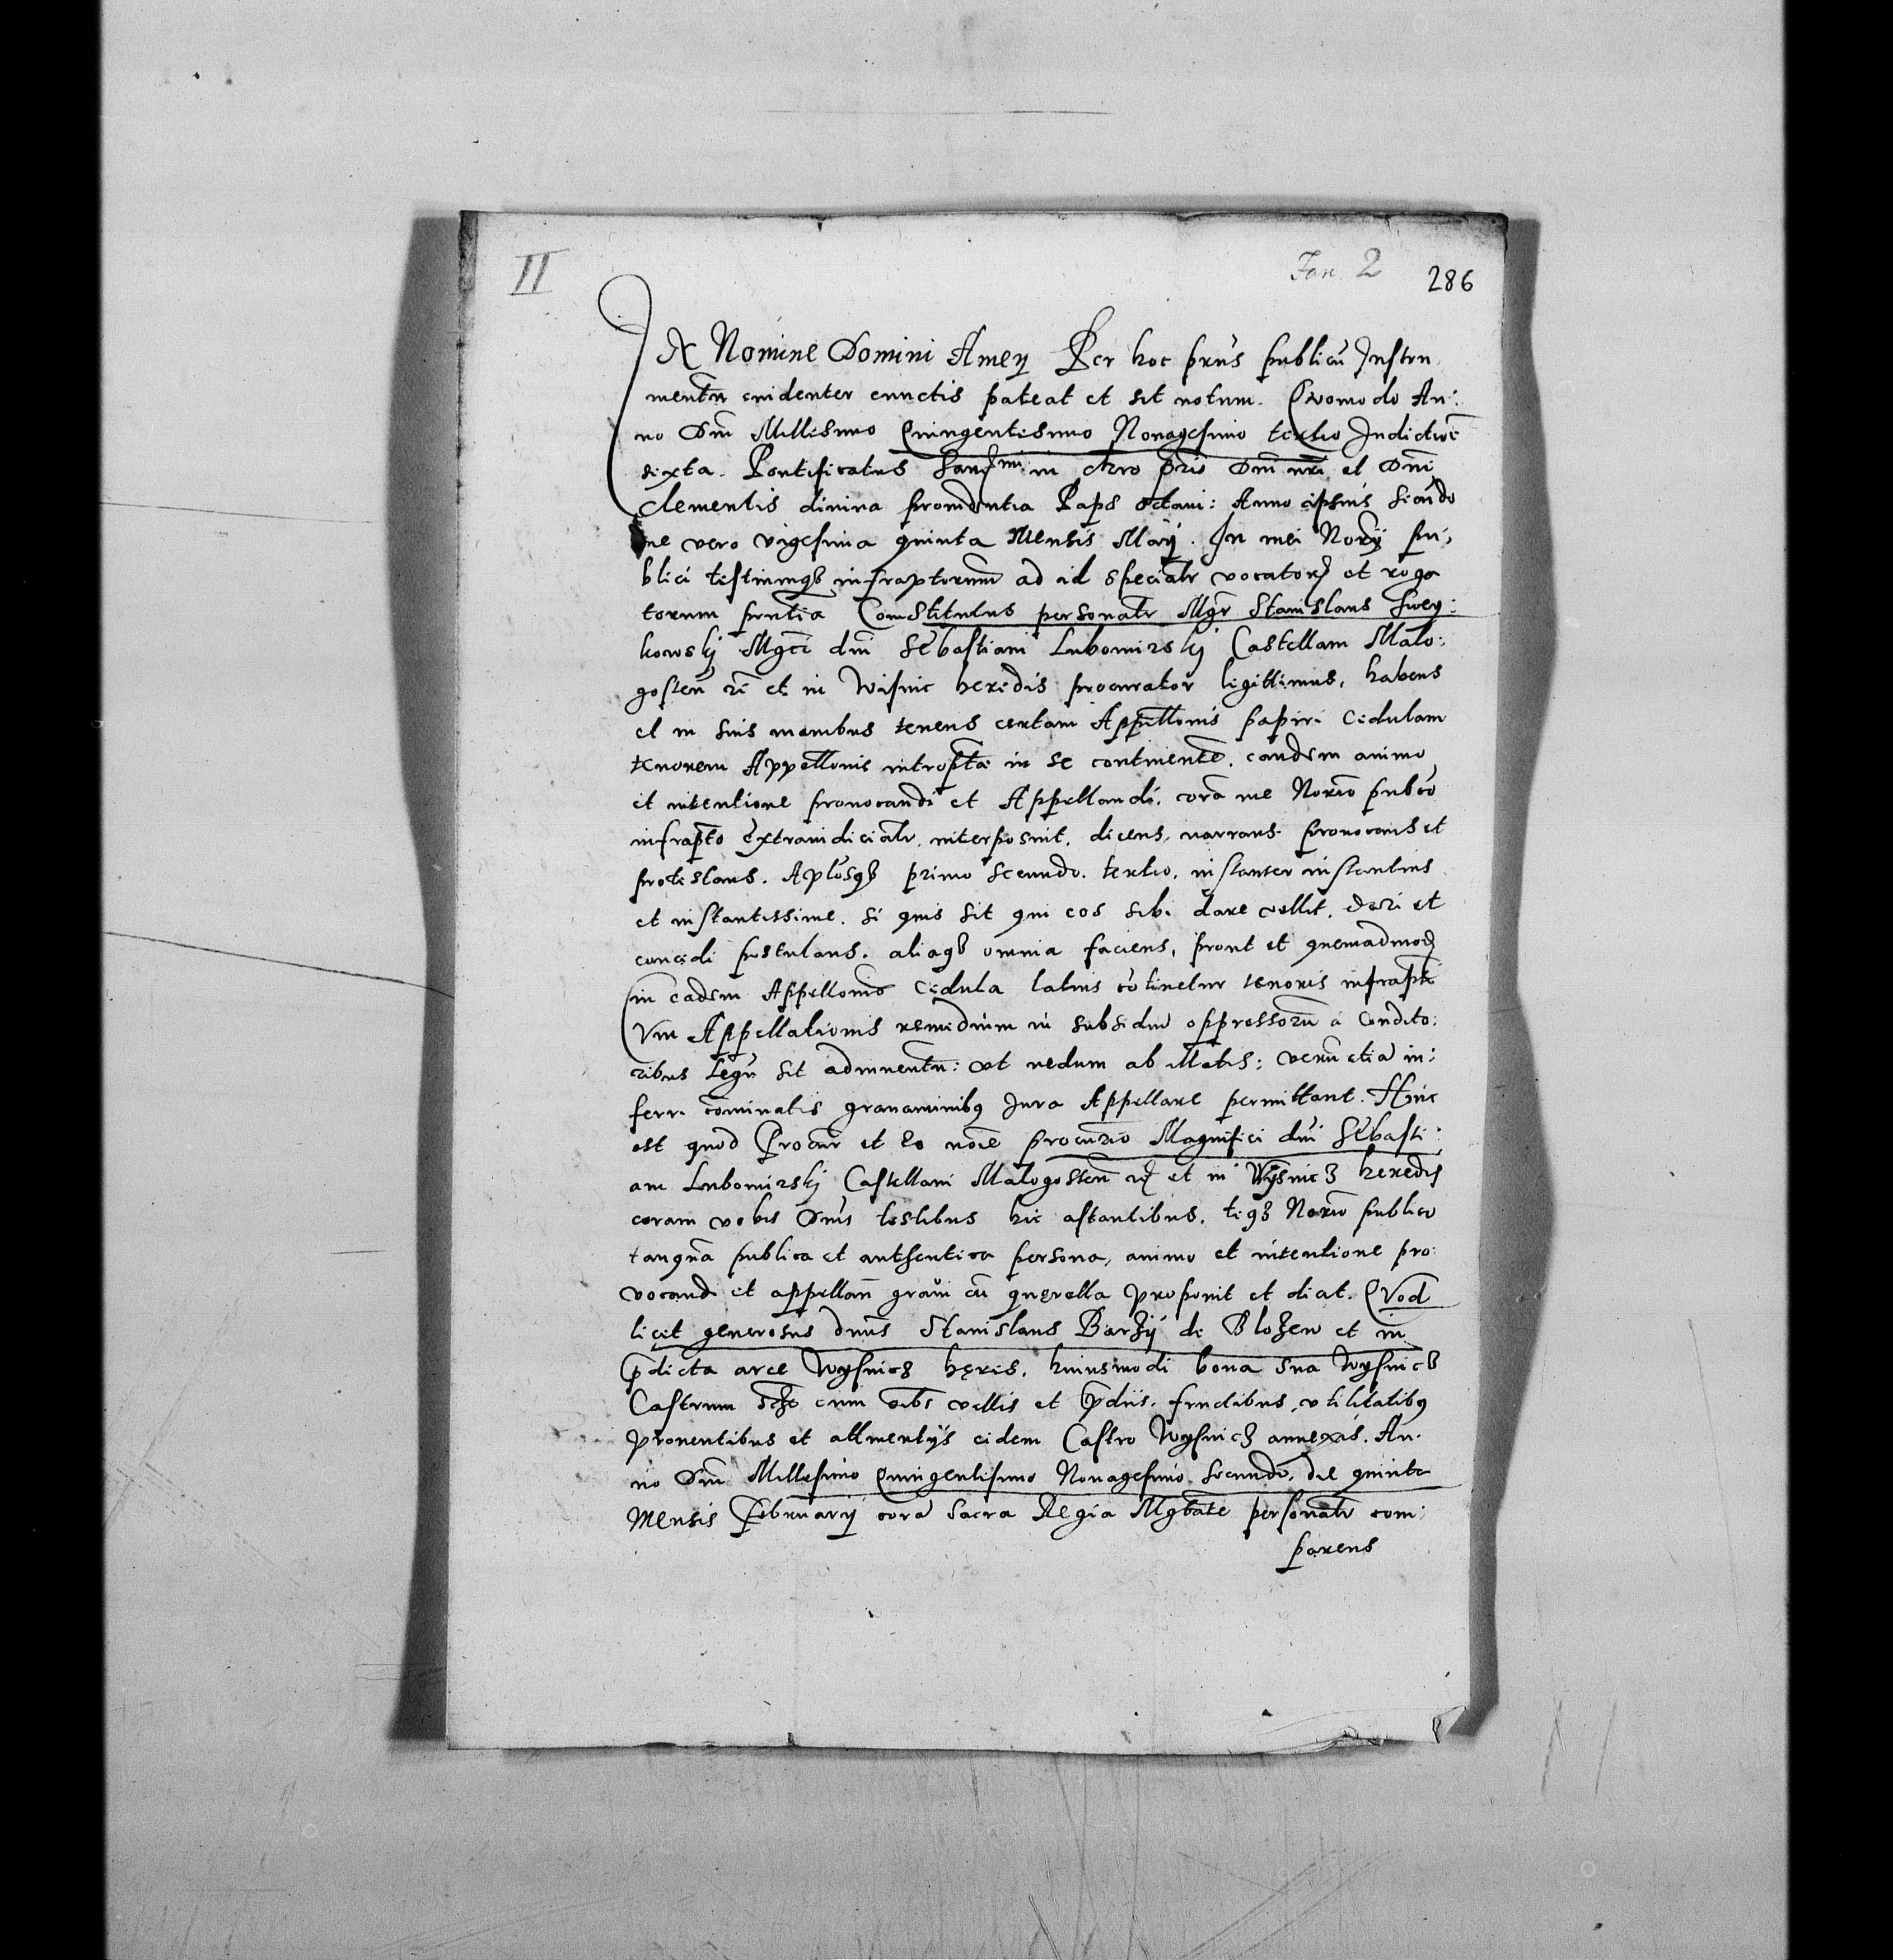 II
Fan. 2 286
IN Nomine Domini Amen Per hoc prñs publicũ Instru
mentũ euidenter cunctis pateat et sit notum. Quomodo An:
no Dñi Millesimo Quingentesimo Nonagesimo tertio Indictiõe
sexta. Pontificatus Sanc^mi in chro pris Dñi nri et Dñi
Clementis diuina prouidentia Papę octaui: Anno ipsius secũdo
vero vigesima quinta Mensis Maij. In mei Norij pu,
blici testiumqȝ infraptorum ad id specialr vocatoꝝ et roga
torum prntia Constitutus personalr Mgr Stanislaus
kowskj Mgci dñi Sebastiani Lubomirskj Castellani Malo:
gosteñ et in Wisnic heredis procurator legittimus, habens
et in suis manibus tenens certam Appellonis papiri Cedulam
tenorem Appellonis introptæ in se continentẽ, eandem animo
et intentione prouocandi et Appellandi, corã me Norio pubco
infrapto Extraiudicialr, interposuit, dicens, narrans prouocans et
protestans. Aplosqȝ primo secundo, tertio, instanter instantius
et instantissime, si quis sit qui eos sibi dare vellit, dari et
concedi postulans, aliaqȝ omnia faciens, prout et quemadmodũ
in eadem Appellonis Cedula latius cõtinetur tenoris infrapti
Cum Appellationis remedium in subsidiũ oppressorũ à Condito:
ribus Legũ sit adinuentũ: vt nedum ab illatis: verũ etiã in:
ferri cominatis grauaminibꝰ Jura Appellare permittant. Hinc
est quod Procur et eo noie procurio Magnifici dñi Sebasti:
ani Lubomirskj Castellani Malogosteñ et in Wysnicȝ heredis
coram vobis Dnis testibus hic astantibus, teqȝ Norio publico
tanquã publica et authentica persona, animo et intentione pro:
vocandi et appellañ graui cũ querella proponit et dicit. Quod
licet generosus dnus Stanislaus Barzij de Blozew et in
prdicta arce Wysnicȝ hęres, huiusmodi bona sua Wysnicȝ
Castrum cum oibs villis et prdiis, fructibus, vtilitatibꝰ
prouentibus et attinentijs eidem Castro Wysnicȝ annexis. An:
no Dñi Millesimo Quingentesimo Nonagesimo Secundo, die quinta
Mensis Februarij corã Sacra Regia Mgtate personalr com:
parens